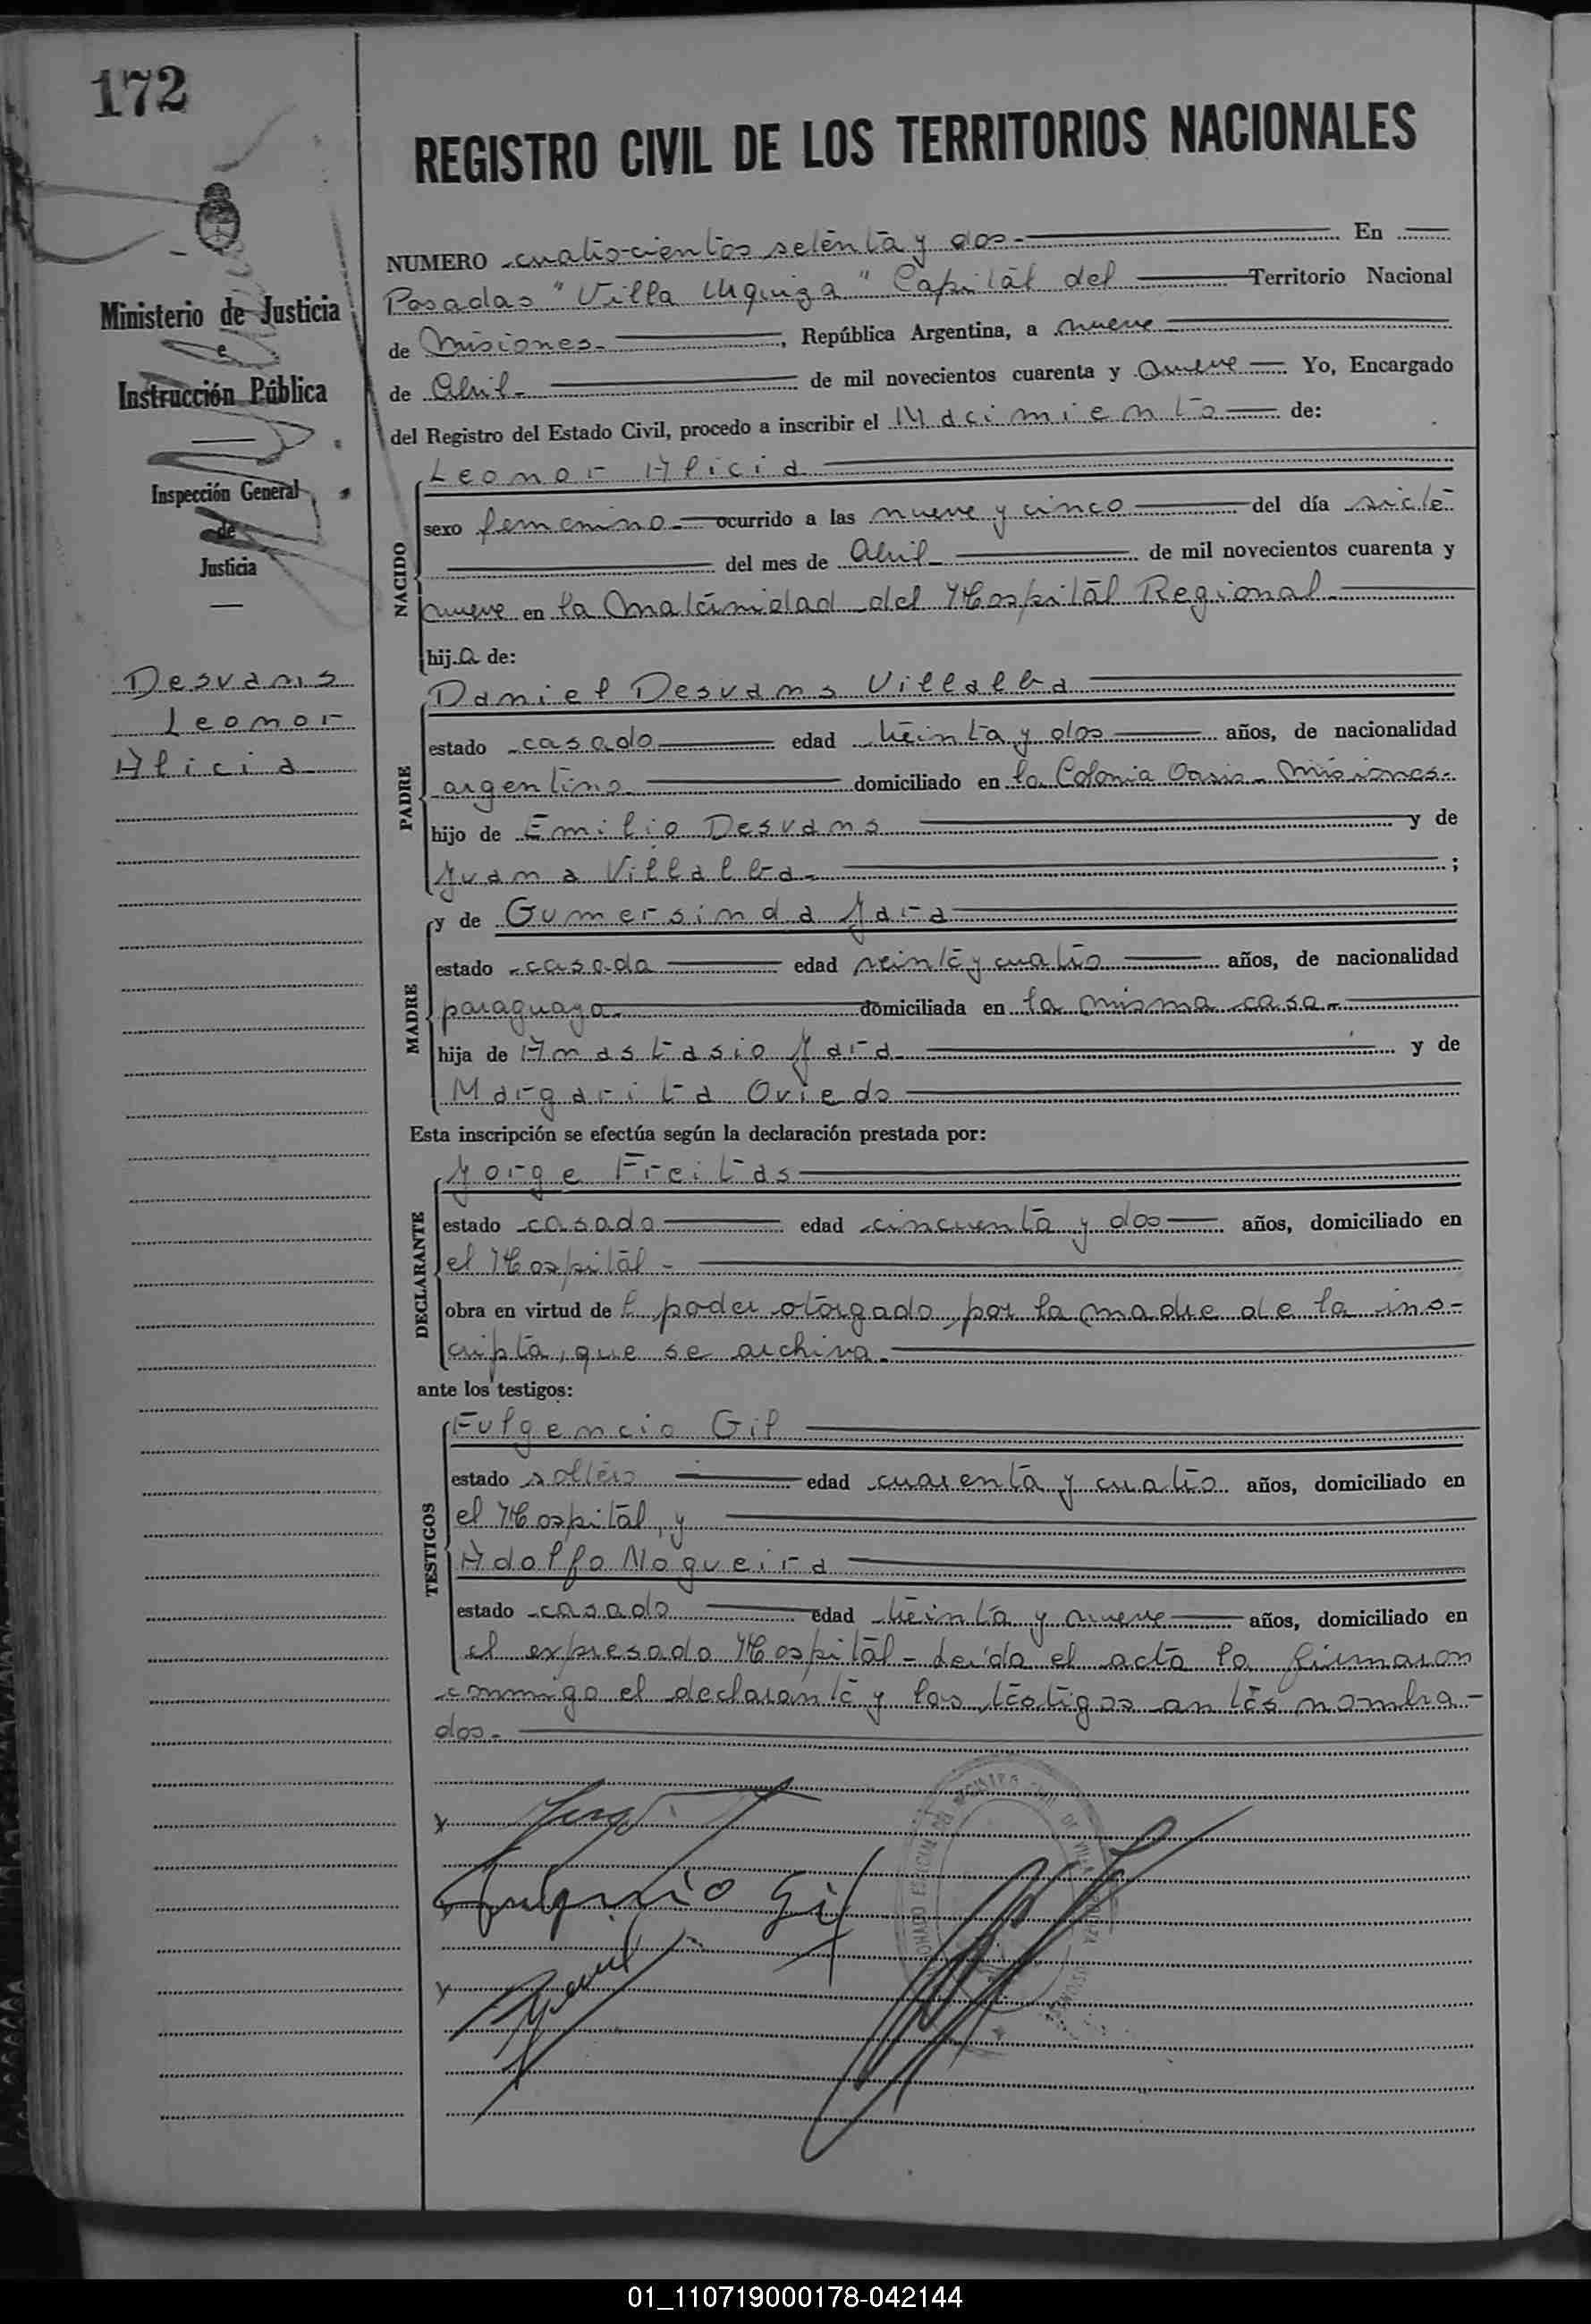 172
REGISTRO CIVIL DE LOS TERRITORIOS NACIONALES
Ministerio de Justicia
e
Instrucción Pública
Inspección General
de
Justicia
Desvans
Leonor
Alicia
NUMERO cuatrocientos setenta y dos.- En
Posadas "Villa Urquiza" Capital del Territorio Nacional
de Misiones.- , República Argentina, a nueve
de Abril.- de mil novecientos cuarenta y nueve Yo, Encargado
del Registro del Estado Civil, procedo a inscribir el Nacimiento de:
NACIDO
Leonor Alicia
sexo femenino.- ocurrido a las nueve y cinco del día siete
del mes de Abril.- de mil novecientos cuarenta y
nueve en la Maternidad del Hospital Regional.-
hij.a de:
PADRE
Daniel Desvans Villalba
estado casado edad treinta y dos años, de nacionalidad
argentino domiciliado en la Colonia Oasis - Misiones.-
hijo de Emilio Desvans y de
Juana Villalba.- ;
MADRE
y de Gumersinda Jara
estado casada edad veinte y cuatro años, de nacionalidad
paraguaya.- domiciliada en la misma casa.-
hija de Anastasio Jara y de
Margarita Oviedo
Esta inscripción se efectúa según la declaración prestada por:
DECLARANTE
Jorge Freitas
estado casado edad cincuenta y dos años, domiciliado en
el Hospital -
obra en virtud de l poder otorgado por la madre de la ins-
cripta, que se archiva.-
ante los testigos:
TESTIGOS
Fulgencio Gil
estado soltero edad cuarenta y cuatro años, domiciliado en
el Hospital, y
Adolfo Nogueira
estado casado edad treinta y nueve años, domiciliado en
el expresado Hospital - Leída el acta la firmaron
conmigo el declarante y los testigos antes nombra-
dos.-
Fulgencio Gil
01_110719000178-042144